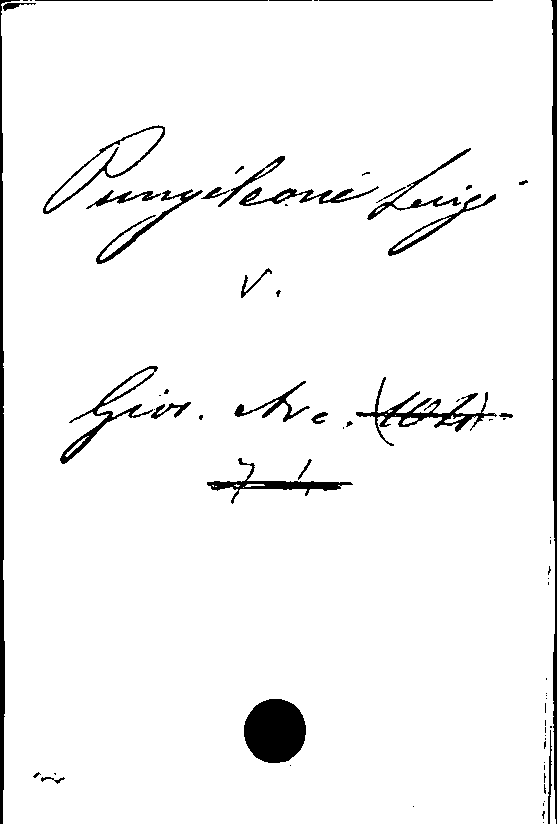 Pungileoni Luigi
v.
Gior. Arc. (104)